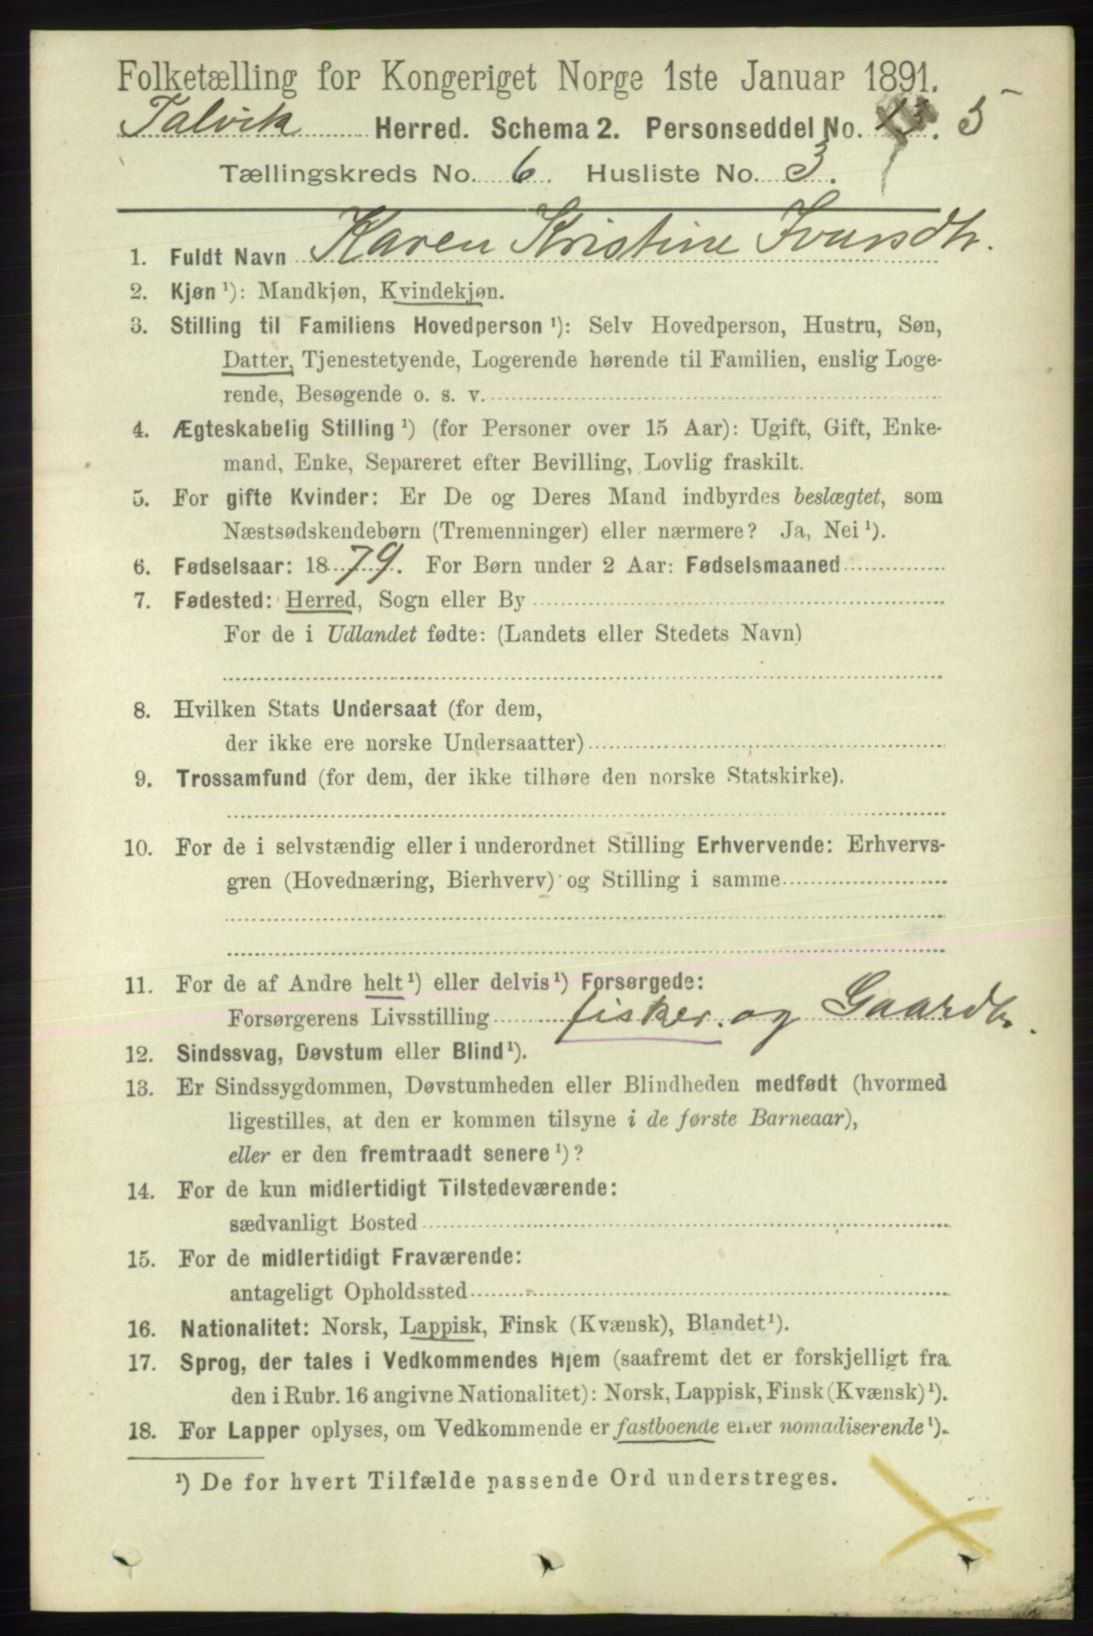 Folketælling for Kongeriget Norge 1ste Januar 1891.
Talvik Herred. Schema 2. Personseddel No. 5
Tællingskreds No. 6. Husliste No. 3.
1. Fuldt Navn Karen Kristine Ivarsdtr.
2. Kjøn¹): Mandkjøn, Kvindekjøn.
3. Stilling til Familiens Hovedperson¹): Selv Hovedperson, Hustru, Søn,
Datter, Tjenestetyende, Logerende hørende til Familien, enslig Loge-
rende, Besøgende o. s. v.
4. Ægteskabelig Stilling¹) (for Personer over 15 Aar): Ugift, Gift, Enke-
mand, Enke, Separeret efter Bevilling, Lovlig fraskilt.
5. For gifte Kvinder: Er De og Deres Mand indbyrdes beslægtet, som
Næstsødskendebørn (Tremenninger) eller nærmere? Ja, Nei¹).
6. Fødselsaar: 1879. For Børn under 2 Aar: Fødselsmaaned
7. Fødested: Herred, Sogn eller By
For de i Udlandet fødte: (Landets eller Stedets Navn)
8. Hvilken Stats Undersaat (for dem,
der ikke ere norske Undersaatter)
9. Trossamfund (for dem, der ikke tilhøre den norske Statskirke).
10. For de i selvstændig eller i underordnet Stilling Erhvervende: Erhvervs-
gren (Hovednæring, Bierhverv) og Stilling i samme
11. For de af Andre helt¹) eller delvis¹) Forsørgede:
Forsørgerens Livsstilling fisker. og Gaardb.
12. Sindssvag, Døvstum eller Blind¹).
13. Er Sindssygdommen, Døvstumheden eller Blindheden medfødt (hvormed
ligestilles, at den er kommen tilsyne i de første Barneaar),
eller er den fremtraadt senere¹)?
14. For de kun midlertidigt Tilstedeværende:
sædvanligt Bosted
15. For de midlertidigt Fraværende:
antageligt Opholdssted
16. Nationalitet: Norsk, Lappisk, Finsk (Kvænsk), Blandet¹).
17. Sprog, der tales i Vedkommendes Hjem (saafremt det er forskjelligt fra
den i Rubr. 16 angivne Nationalitet): Norsk, Lappisk, Finsk (Kvænsk)¹).
18. For Lapper oplyses, om Vedkommende er fastboende eller nomadiserende¹).
¹) De for hvert Tilfælde passende Ord understreges.